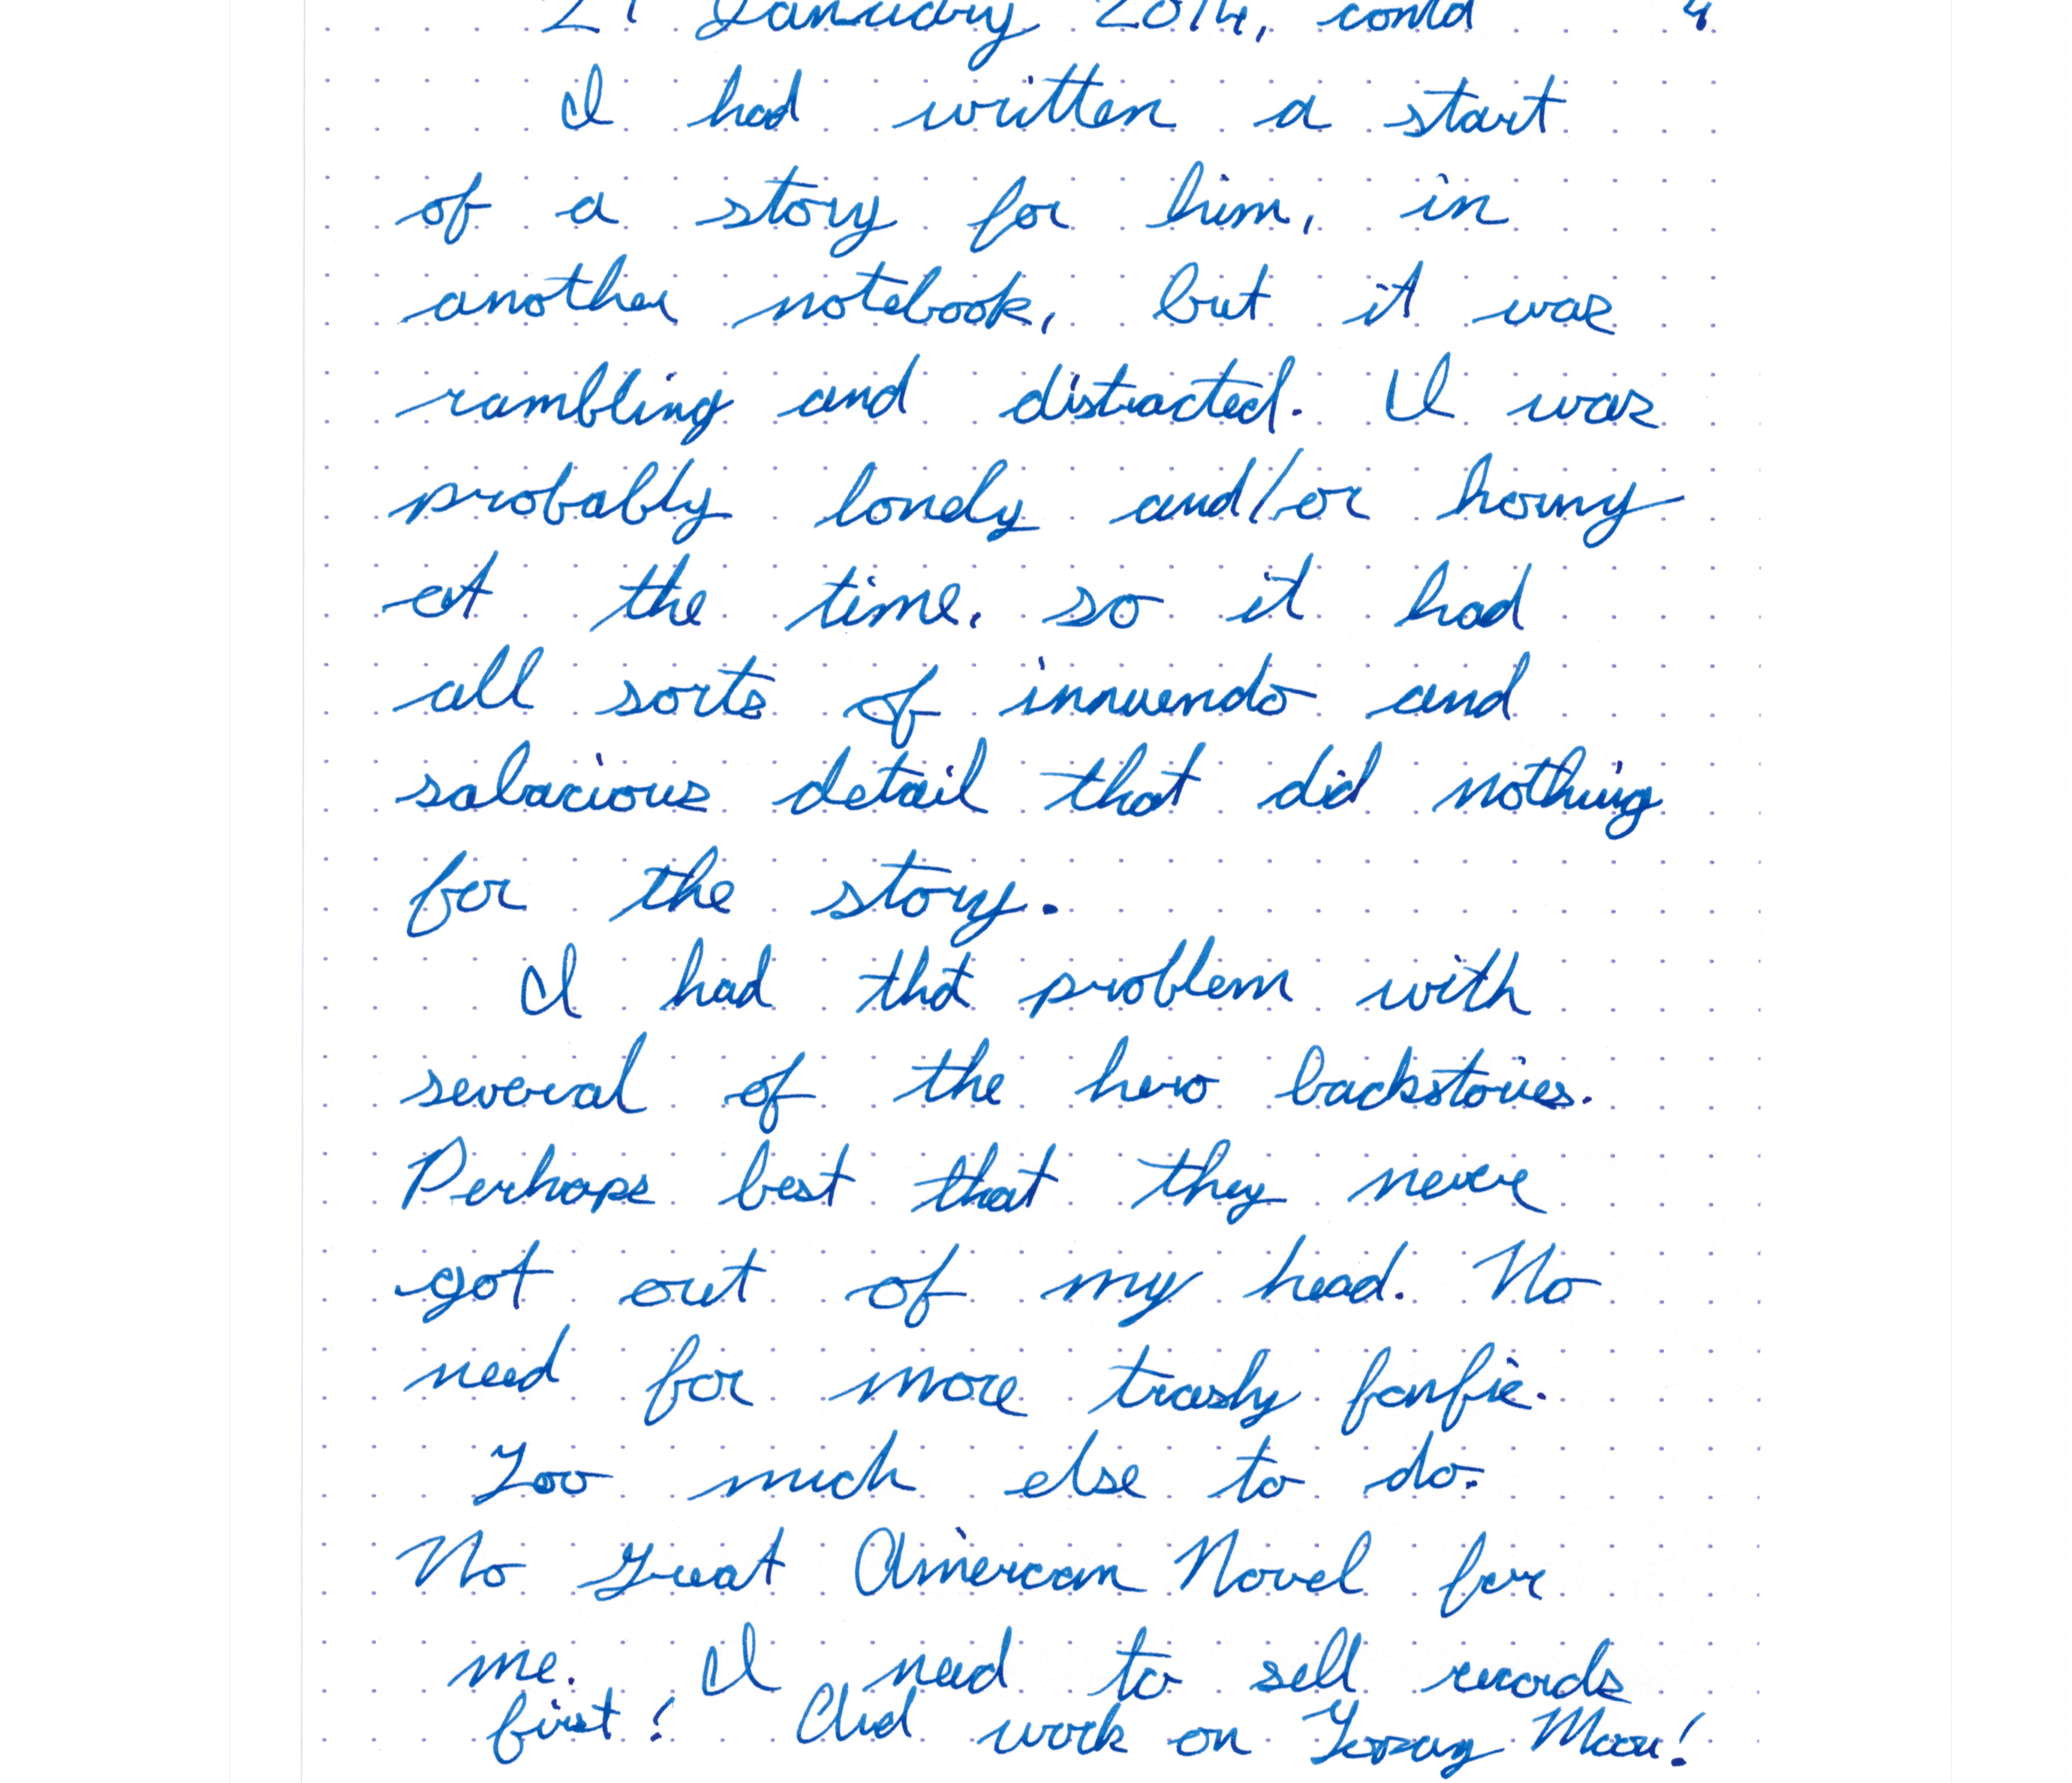 January 2014, contd 4
I had written a start
of a story for him, in
another notebook, but it was
rambling and distracted. I was
probably lonely and/or horny
at the time, so it had
all sorts of innuendo and
salacious detail that did nothing
for the story.
I had that problem with
several of the hero backstories.
Perhaps best that they never
got out of my head. No
need for more trashy fanfic.
Too much else to do.
No Great American Novel for
me. I need to sell records
first! And work on